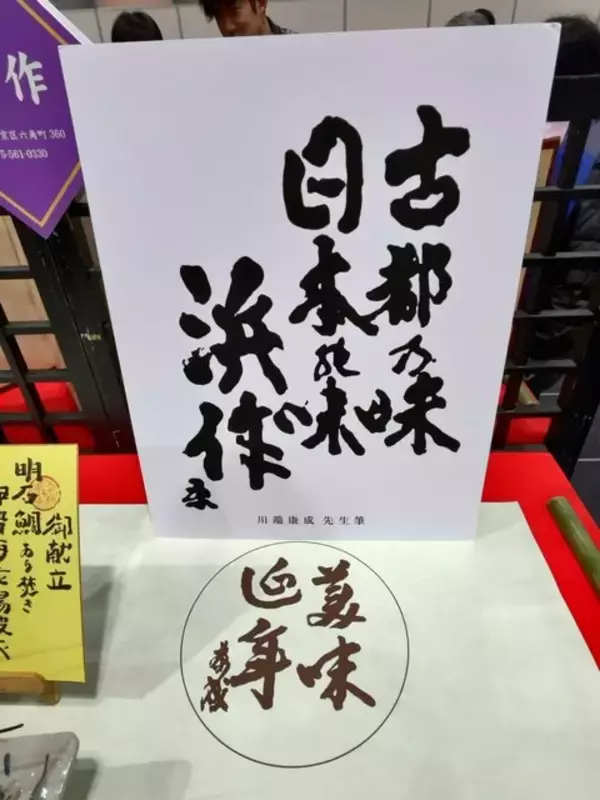 作
京区六角町 360
5-561-0330
古都乃味
日本の味
浜作
川端康成 先生筆
御献立
明石鯛あら焚き
美味
延年
康成